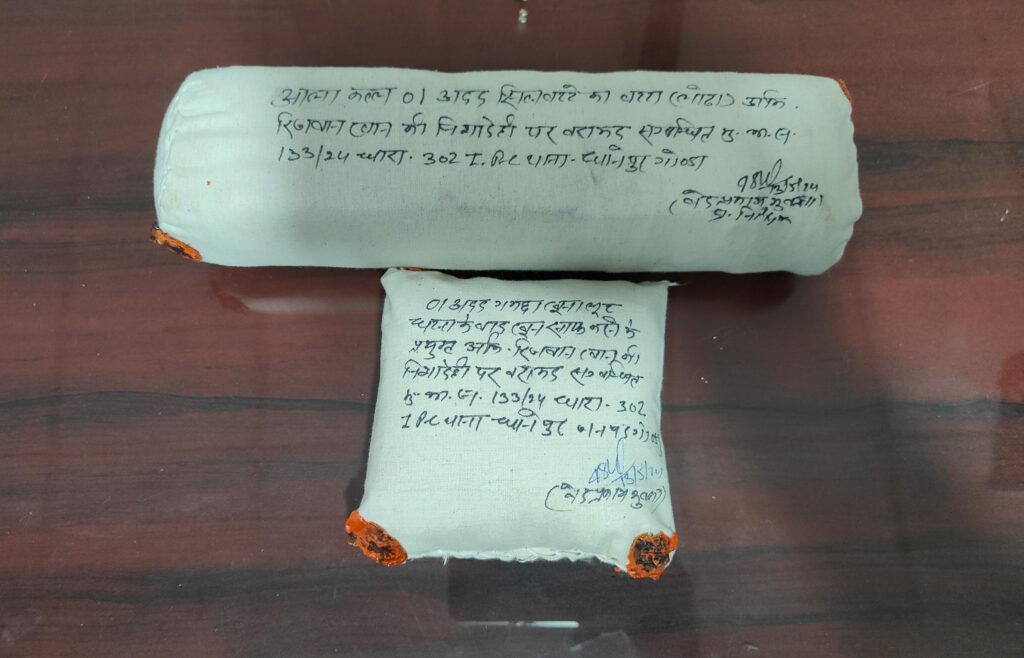 आला कत्ल 01 अदद सिलवट्टे का बट्टा (लोढ़ा) अभि.
रिजवान खान की निशादेही पर बरामद सम्बन्धित मु. अ. सं.
133/24 धारा. 302 I.P.C थाना. धानेपुर गोण्डा
13/5/24
(वेद प्रकाश शुक्ला)
प्र. निरीक्षक
01 अदद गमछा
के बाद खून साफ करने के
प्रयुक्त अभि. रिजवान खान की
निशादेही पर बरामद सम्बन्धित
मु. अ. सं. 133/24 धारा. 302
I P.C थाना धानेपुर जनपद गोण्डा
13/5/24
(वेद प्रकाश शुक्ला)